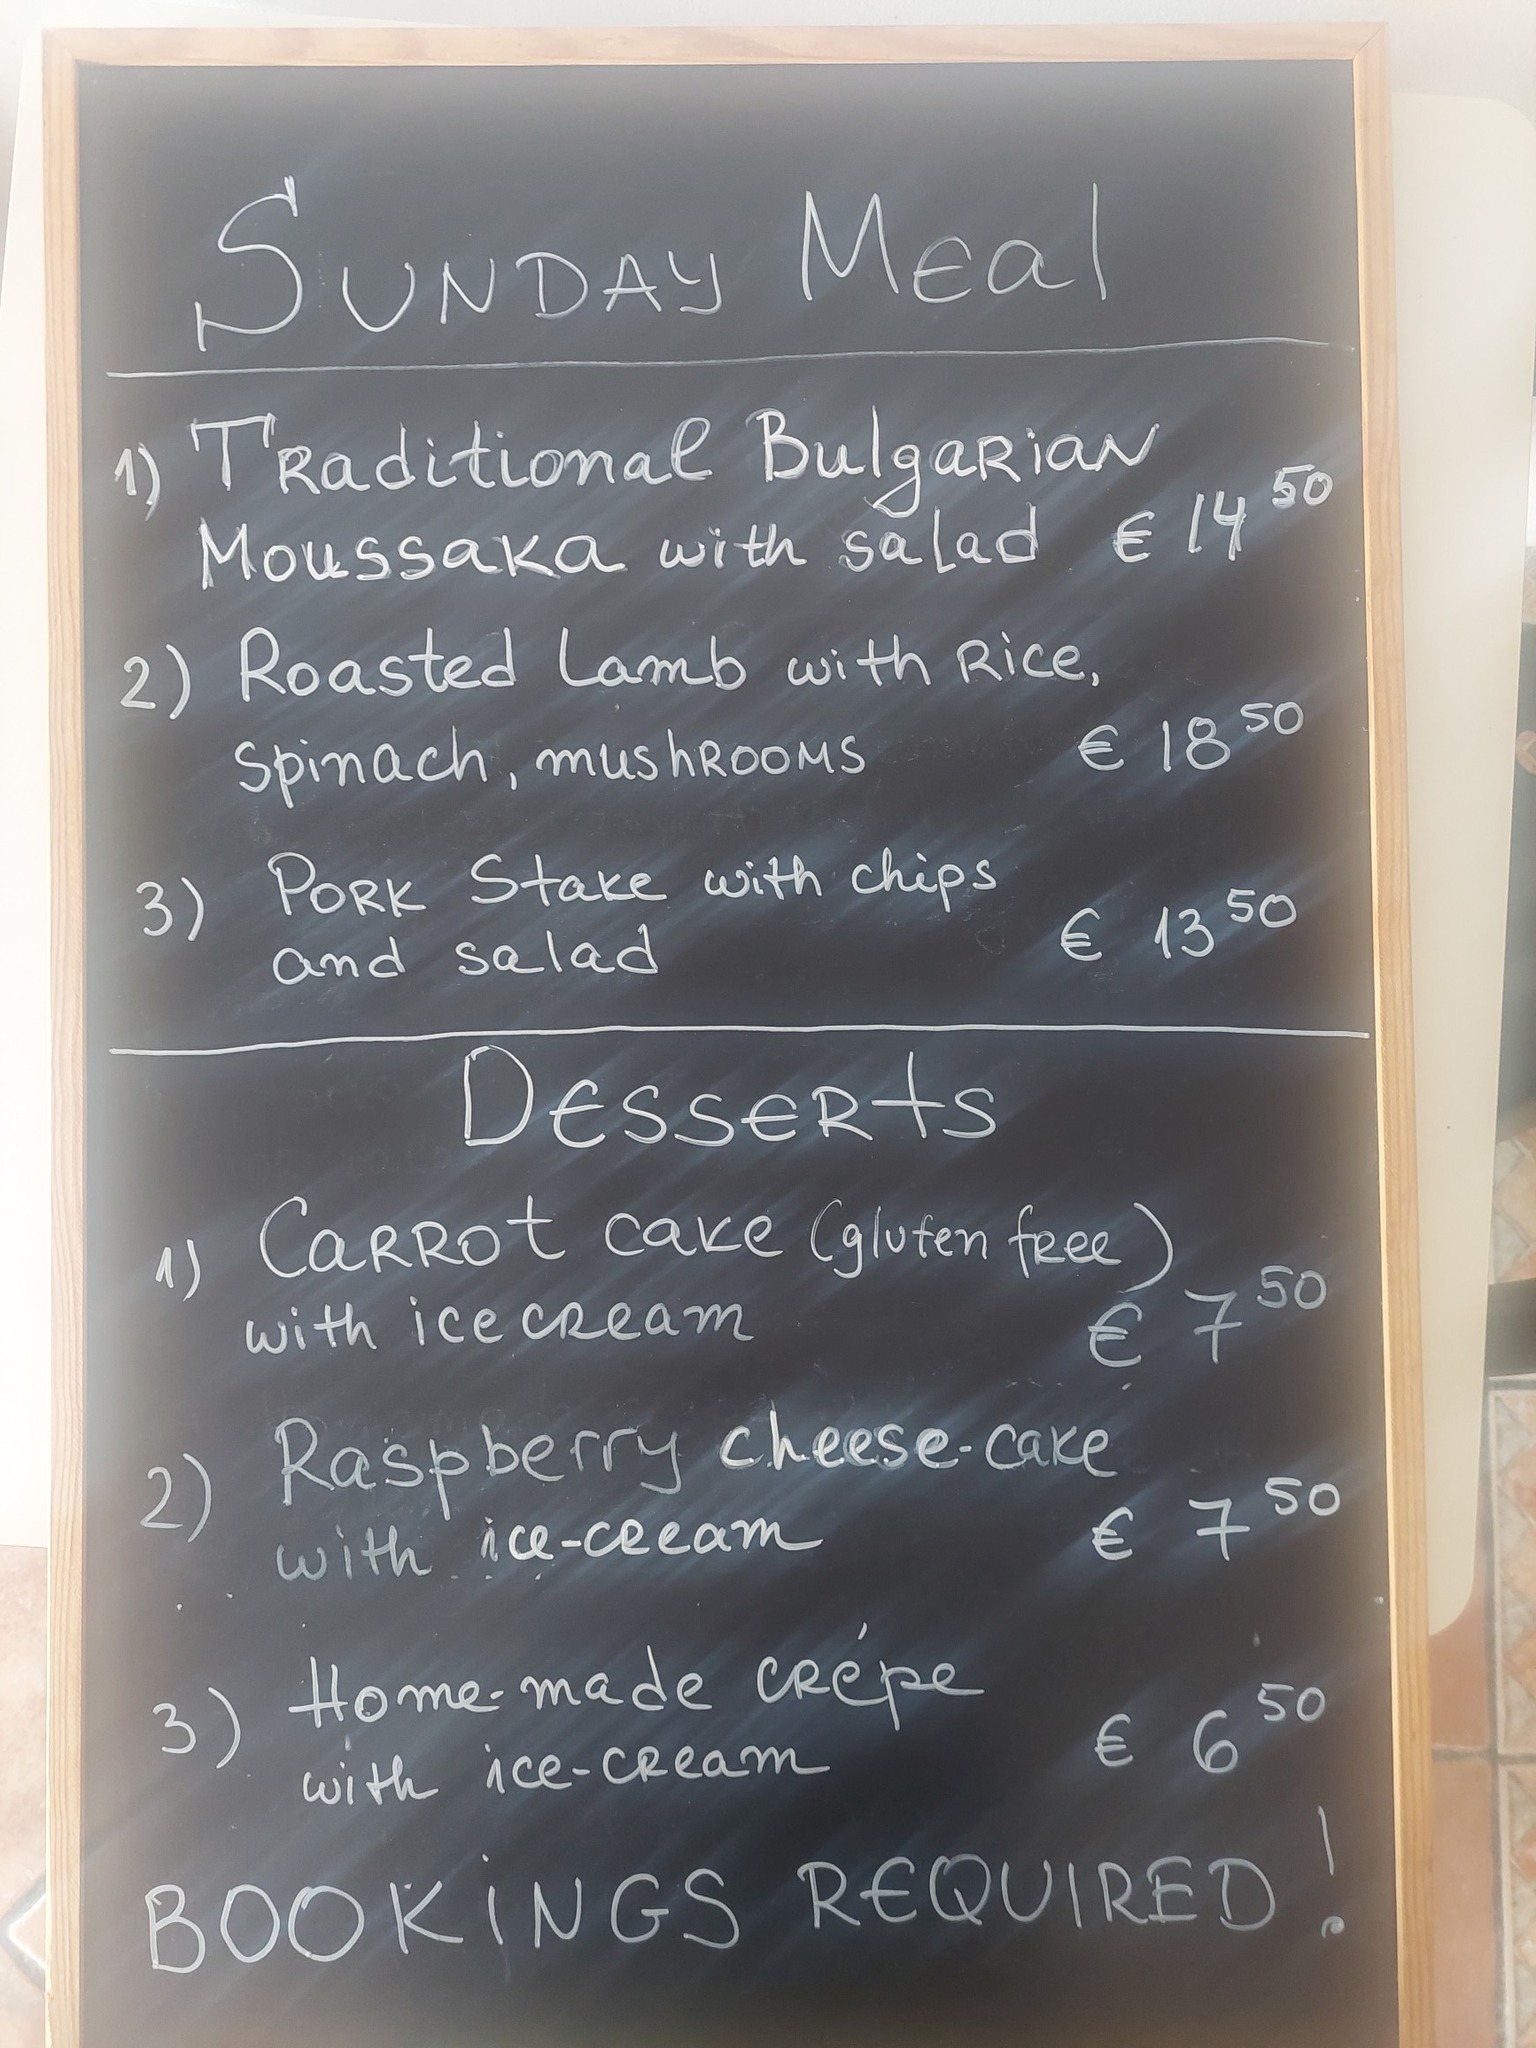 Sunday Meal
1) Traditional Bulgarian
Moussaka with salad € 14 50
2) Roasted Lamb with Rice,
spinach, mushrooms € 18 50
3) Pork Stake with chips
and salad € 13 50
Desserts
1) Carrot cake (gluten free)
with icecream € 7 50
2) Raspberry cheese-cake
with ice-cream € 7 50
3) Home-made crépe
with ice-cream € 6 50
BOOKINGS REQUIRED!